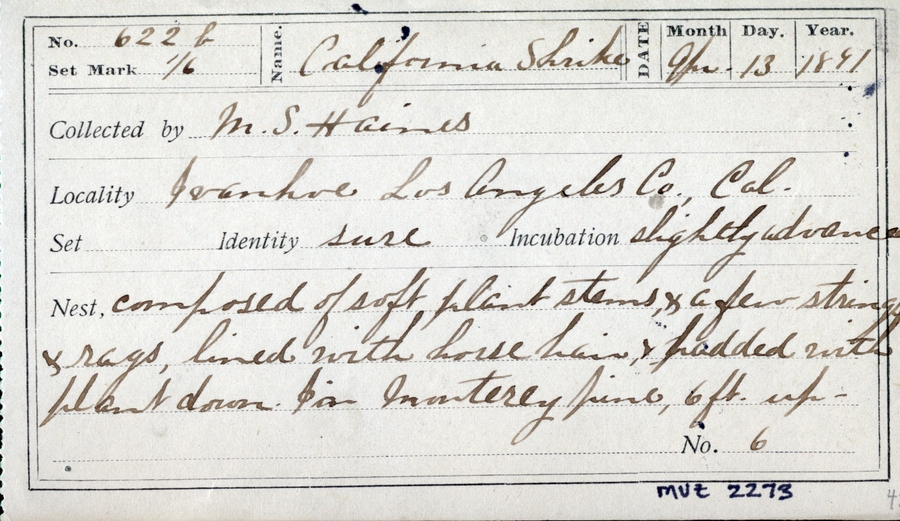 No. 622 b Name. California Shrike DATE Month Day. Year.
Set Mark 1/6 Apr. 13 1891
Collected by M. S. Haines
Locality Ivanhoe Los Angeles Co., Cal.
Set Identity sure Incubation slightly advanced
Nest, composed of soft plant stems, & a few strings
& rags, lined with horse hair, & padded with
plant down. In Monterey pine, 6 ft. up-
No. 6
MVZ 2273